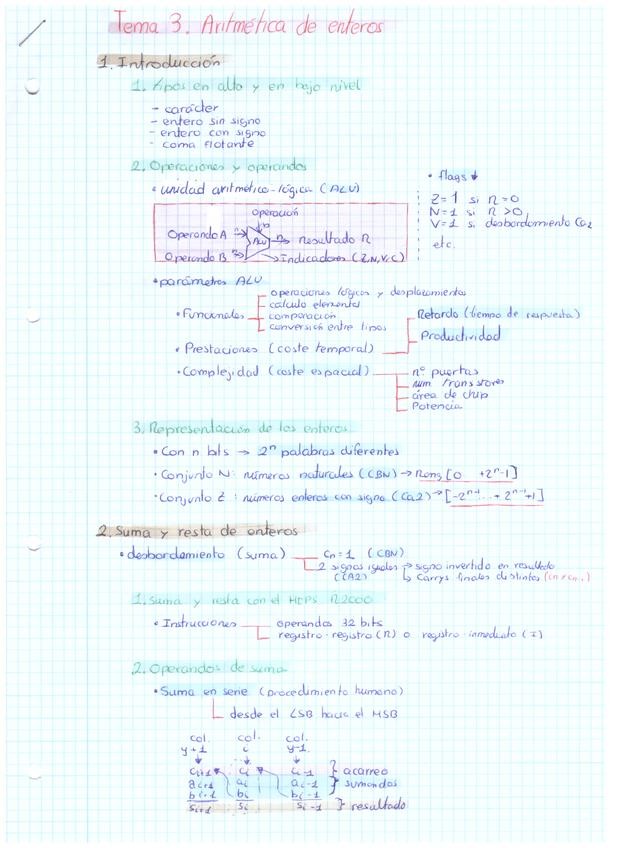 Tema 3. Aritmética de enteros
1. Introducción
1. tipos en alto y en bajo nivel
- carácter
- entero sin signo
- entero con signo
- coma flotante
2. Operaciones y operandos
• unidad aritmético-lógica (ALU)
operación
Operando A
ALU
resultado R
Operando B
Indicadores (Z,N,V,C)
• flags
Z=1 si R=0
N=1 si R>0
V=1 si desbordamiento Ca2
etc.
• parámetros ALU
• Funcionales
operaciones lógicas y desplazamientos
calculo elemental
comparación
conversión entre tipos
• Prestaciones (coste temporal)
Retardo (tiempo de respuesta)
Productividad
• Complejidad (coste espacial)
nº puertas
num. transistores
área de chip
Potencia
3. Representación de los enteros
• Con n bits → 2ⁿ palabras diferentes
• Conjunto N: números naturales (CBN) → Rang [0 +2ⁿ-1]
• Conjunto Z: números enteros con signo (Ca2) → [-2ⁿ⁻¹...+2ⁿ⁻¹+1]
2. Suma y resta de enteros
• desbordamiento (suma)
Cn=1 (CBN)
2 signos iguales (CA2)
signo invertido en resultado
Carrys finales distintos
1. Suma y resta con el MIPS R2000
• Instrucciones
operandos 32 bits
registro-registro (R) o registro-inmediato (I)
2. Operandos de suma
• Suma en serie (procedimiento humano)
desde el LSB hacia el MSB
col. col. col.
y+1 i y-1.
ci+1 ci ci-1 } acarreo
ai+1 ai ai-1 } sumandos
bi+1 bi bi-1
si+1 si si-1 } resultado